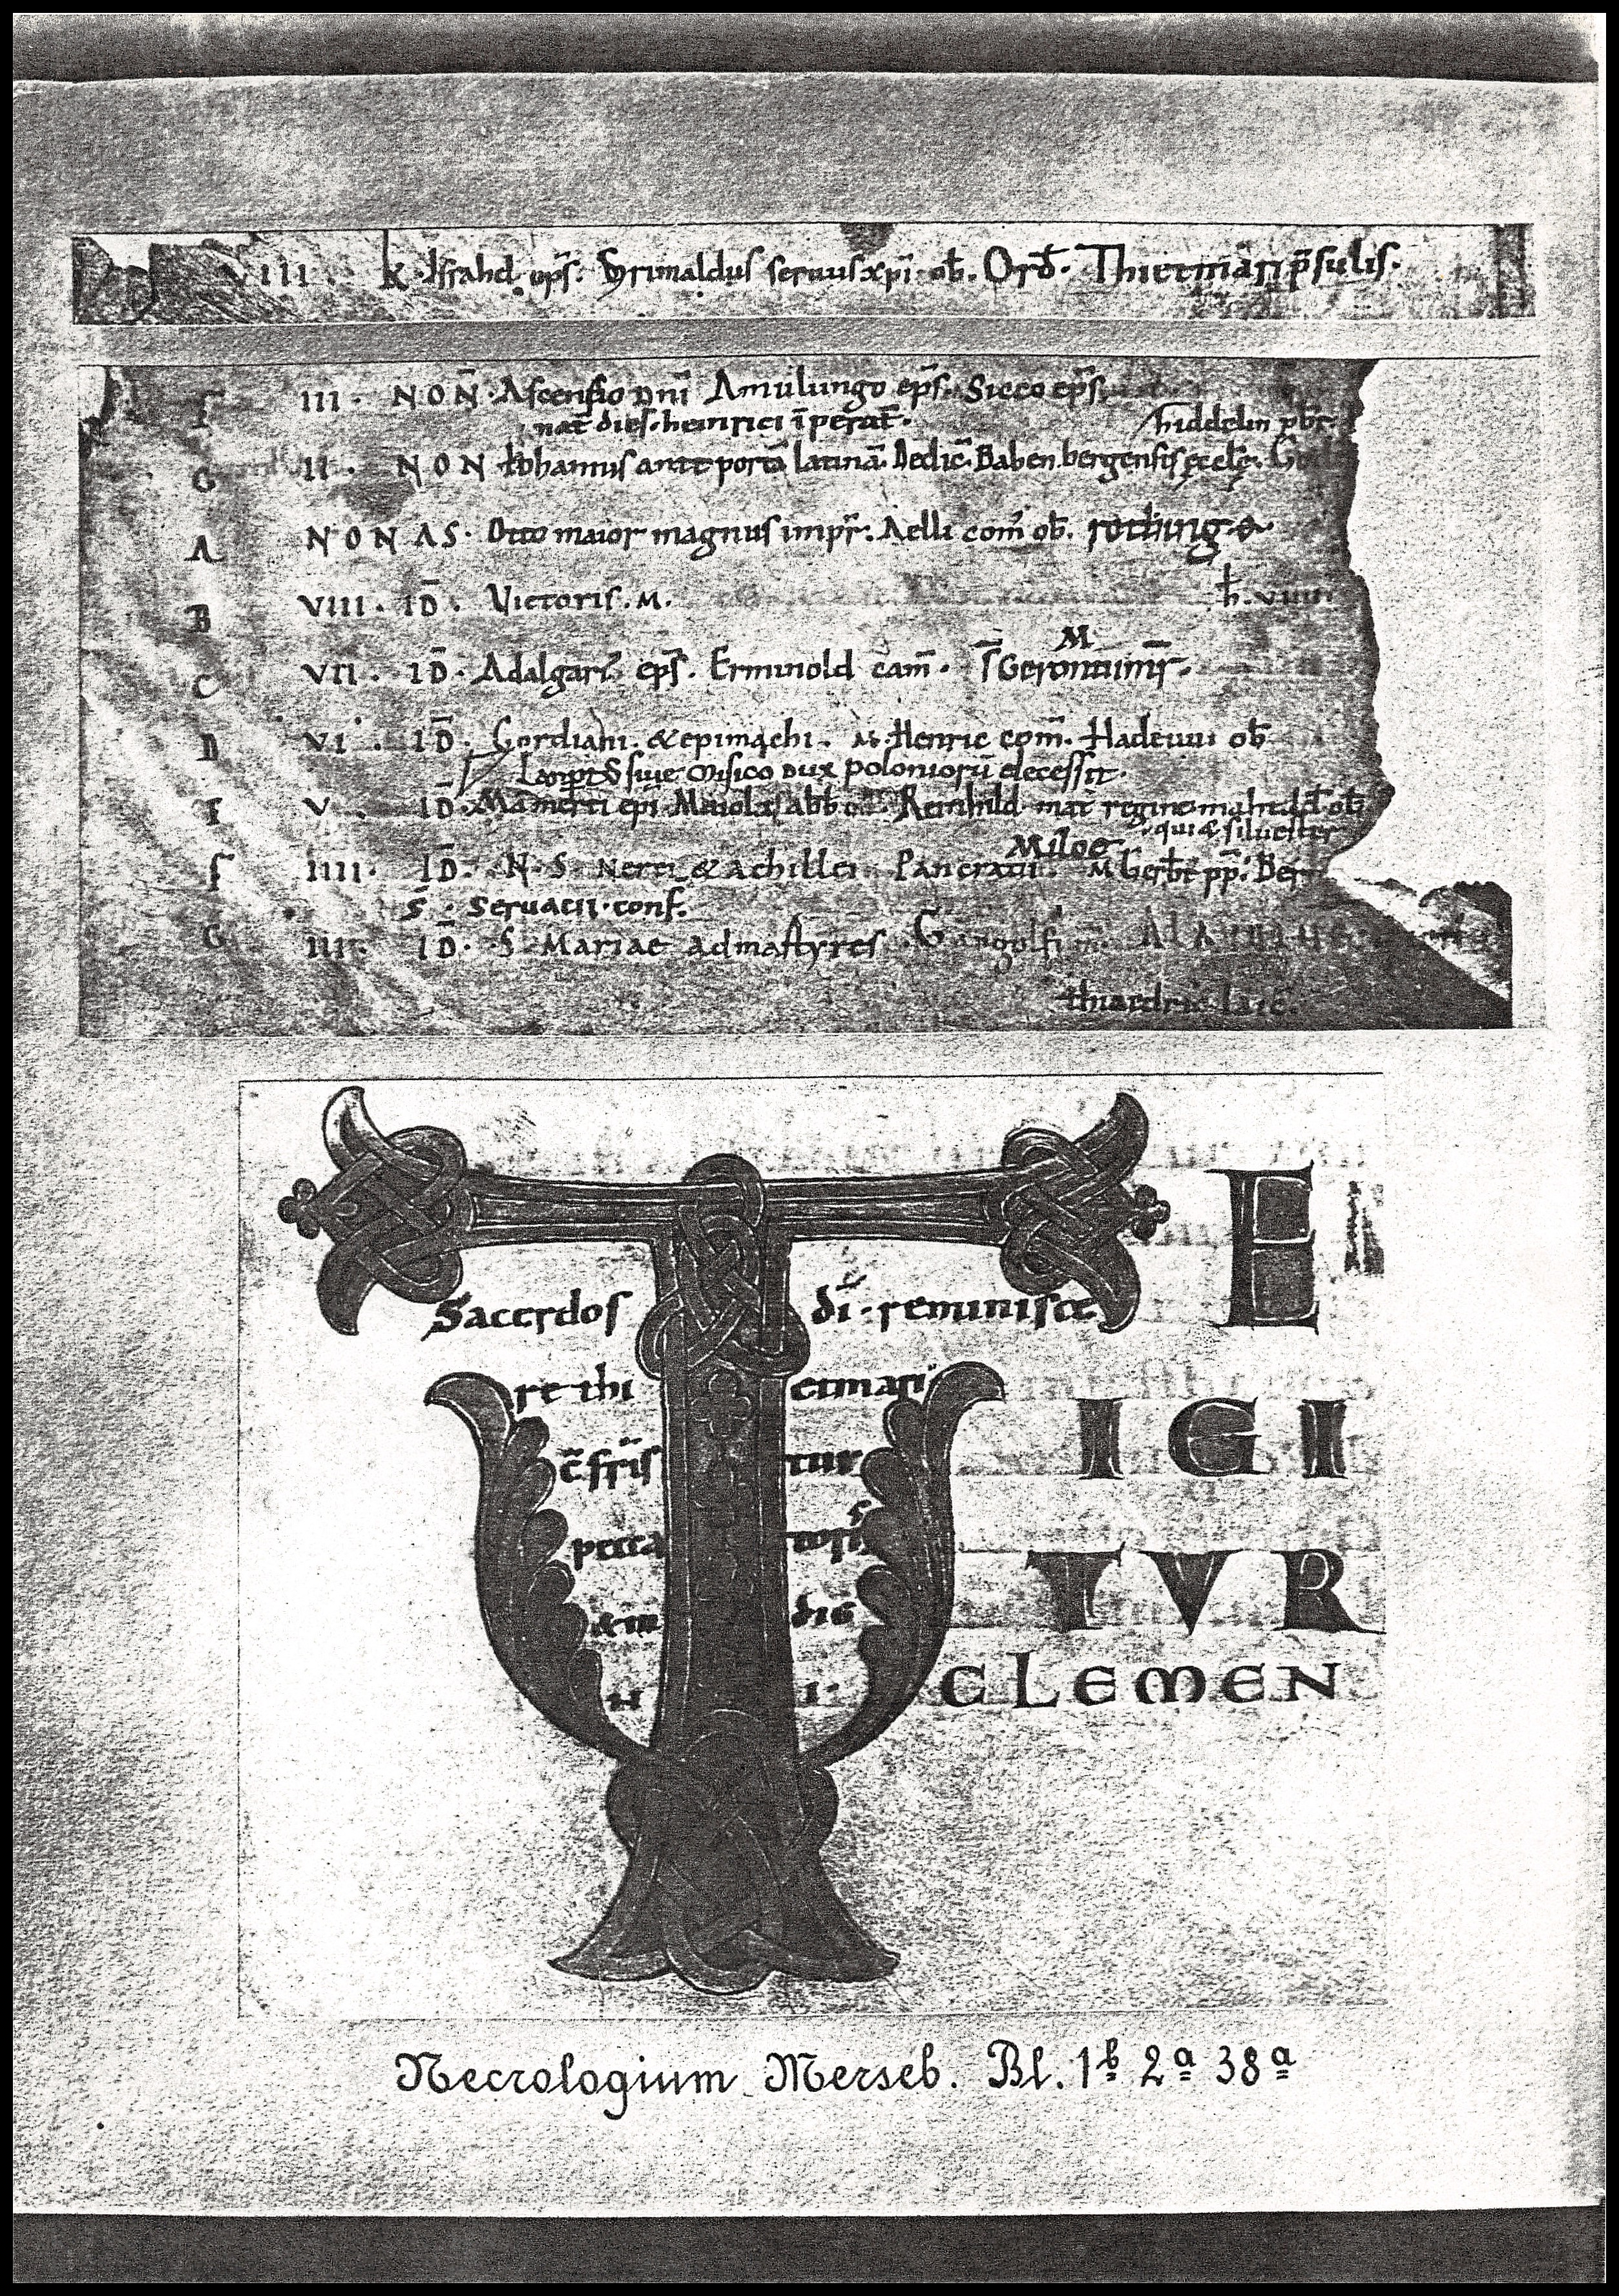 VIII. k. Isfrahd. ep̄s. Brunaldus seruus xp̄i ob̄. Ord̄. Thietmari p̄sulis.
F III. NON̄. Ascensio Dn̄i Amulungo ep̄s. Sicco ep̄s.
nat̄ dies. heinrici īperat̄. hiddelin pb̄r.
G II. NON Iohannis ante portā latinā. Dedic̄. Babenbergensis ęcclę.
A NONAS. Otto maior magnus impr̄. Aelli com̄ ob̄.
B VIII. ID̄. Victoris. M.
M
C VII. ID̄. Adalgari ep̄s. Ermnold cam̄.
D VI. ID̄. Gordiani. & epimachi. M. Henric com̄. Hadeuui ob̄
Lanp̄td̄ siue Misico Dux poloniorū decessit.
E V. ID̄. Mamerti ep̄i Maiolas abb̄ Reinhild. mat̄ regine ob̄
qui & siluester
Miloe
F IIII. ID̄. N. S Nerei & achillei Pancratii. M Gerbt pp̄. Ber
S̄. Seruacii. conf.
G III. ID̄. S Mariae ad martyres. Gangolfi m.
thiaedric laic.
T E
Sacerdos dī. reminisce
re thi etmari
c̄fris tui
pecca toris
& in dig
n i.
IGI
TVR
CLEMEN
Necrologium Merseb. Bl. 1ᵇ 2ᵃ 38ᵃ